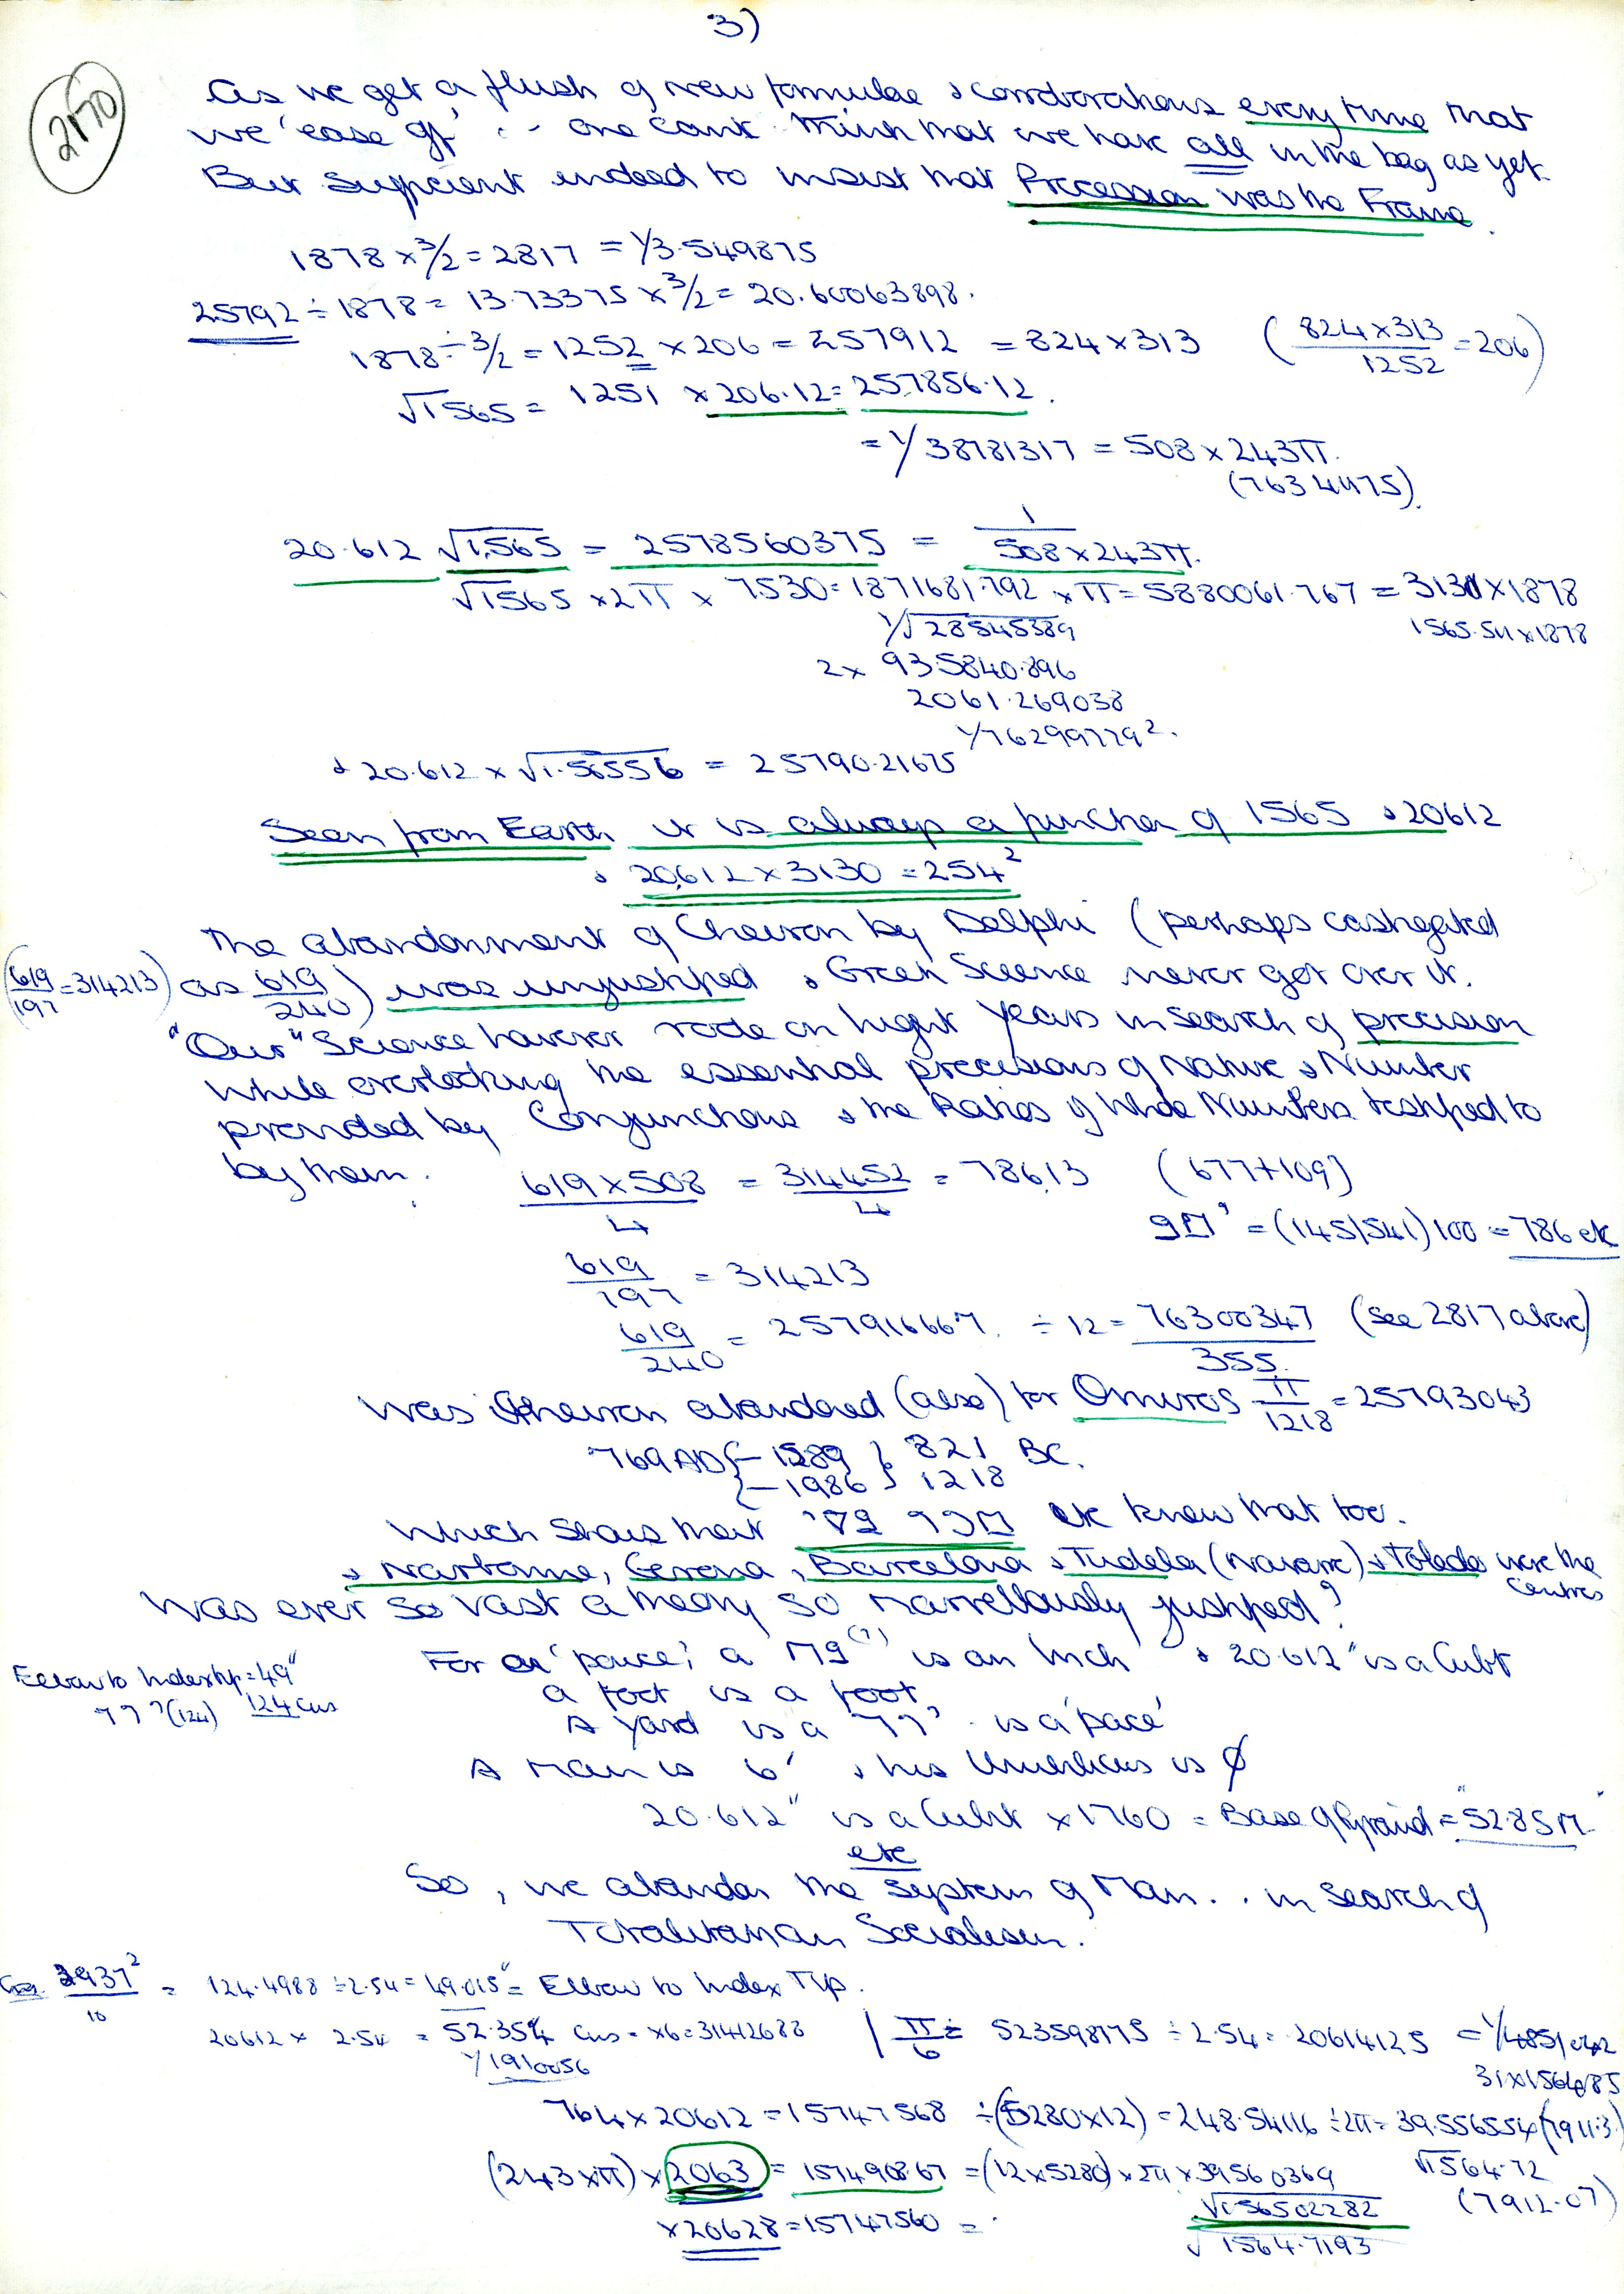 3)
2170
As we get a flush of new formulae & corroborations every time that
we 'ease off' : - one can't think that we have all in the bag as yet.
But sufficient indeed to insist that Precession was the Frame.
1878 × 3/2 = 2817 = 1/3.549875
25792 ÷ 1878 = 13.73375 × 3/2 = 20.60063898.
1878 ÷ 3/2 = 1252 × 206 = 257912 = 824 × 313 (824 × 313 / 1252 = 206)
√1565 = 1251 × 206.12 = 257856.12.
= 1/38781317 = 508 × 243π.
(7634075).
20.612 √1.565 = 2578560375 = 1/508 × 243π.
√1565 × 2π × 7530 = 1871681.792 × π = 5880061.767 = 3131 × 1878
1/√28545389 1565.511 × 1878
2 × 935840.896
2061.269038
1/76299779².
& 20.612 × √1.56556 = 25790.21675
Seen from Earth it is always a function of 1565 & 20612
& 20,612 × 3130 = 254²
The abandonment of Cheiron by Delphi (perhaps castigated
(619/197 = 314213) as 619/240) was unjustified & Greek Science never got over it.
"Our" Science however rode on light years in search of precision
while overlooking the essential precisions of Nature & Number
provided by Conjunctions & the Ratios of Whole Numbers testified to
by them.
619 × 508 / 4 = 314452 / 4 = 78613 (677+109)
= (1451541) 100 = 786 etc
619/197 = 314213
619/240 = 257916667. ÷ 12 = 76300347 / 355. (see 2817 above)
Was Cheiron abandoned (also) for Omuros π/1218 = 25793043
769 AD {- 1589 } 821 BC.
{- 1986 } 1218
Which shows that etc knew that too.
& Narbonne, Gerona, Barcelona & Tudela (Navarre) & Toledo were the
centres
Was ever so vast a theory so marvellously justified?
For a 'pouce', a is an Inch & 20.612" is a Cubit
Elbow to Index tip = 49"
(124) 124 cms
a foot is a foot,
A yard is a is a 'pace'
A Man is 6' & his Umbilicus is φ
20.612" is a Cubit × 1760 = Base of Pyramid = "52.85M"
etc
So, we abandon the system of Man . . in search of
Totalitarian Socialism.
2937² / 10 = 124.4988 ÷ 2.54 = 49.015" = Elbow to Index Tip.
20612 × 2.54 = 52.354 cms = × 6 = 31412688 | π/6 = 523598775 ÷ 2.54 = 20614125 = 1/4851042
1/1910056 31 × 1564.85
764 × 20612 = 15747568 ÷ (5280 × 12) = 248.54116 ÷ 2π = 39.556554 (7911.3)
(243 × π) × 2063 = 157490867 = (12 × 5280) × 2π × 39560369 √1564.72
√1.56502282 (7912.07)
× 20628 = 15747560 =
√1564.7193